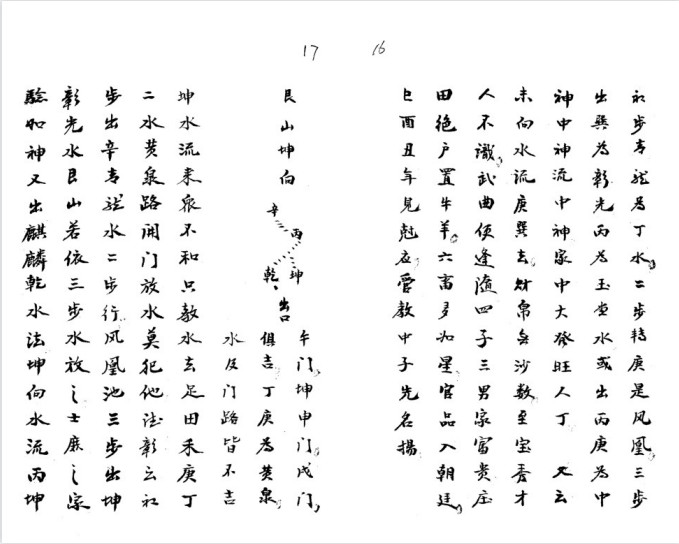 16
初步专龙为丁水。二步转庚是凤凰三步
出巽为彰光丙为玉堂水或出丙庚为中
神中神流中神家中大发旺人丁 又云
未向水流庚巽去。财帛无沙数至宝秀才
人不识。武曲便逢随四子三男家富贵庄
田绝户置牛羊。六畜多如星官品入朝廷。
巳酉丑年见魁应。管教中子先名扬
17
艮山坤向
辛 丙 坤 乾、出口
午门。坤申门。戌门。
俱吉丁庚为黄泉。
水及门路皆不吉
坤水流来家不和只教水去足田禾庚丁
二水黄泉路开门放水莫犯他法彰云初
步出辛专龙水二步行凤凰池三步出坤
彰光水艮山若依三步水放之士庶之家
驗如神又出麒麟乾水法坤向水流丙坤